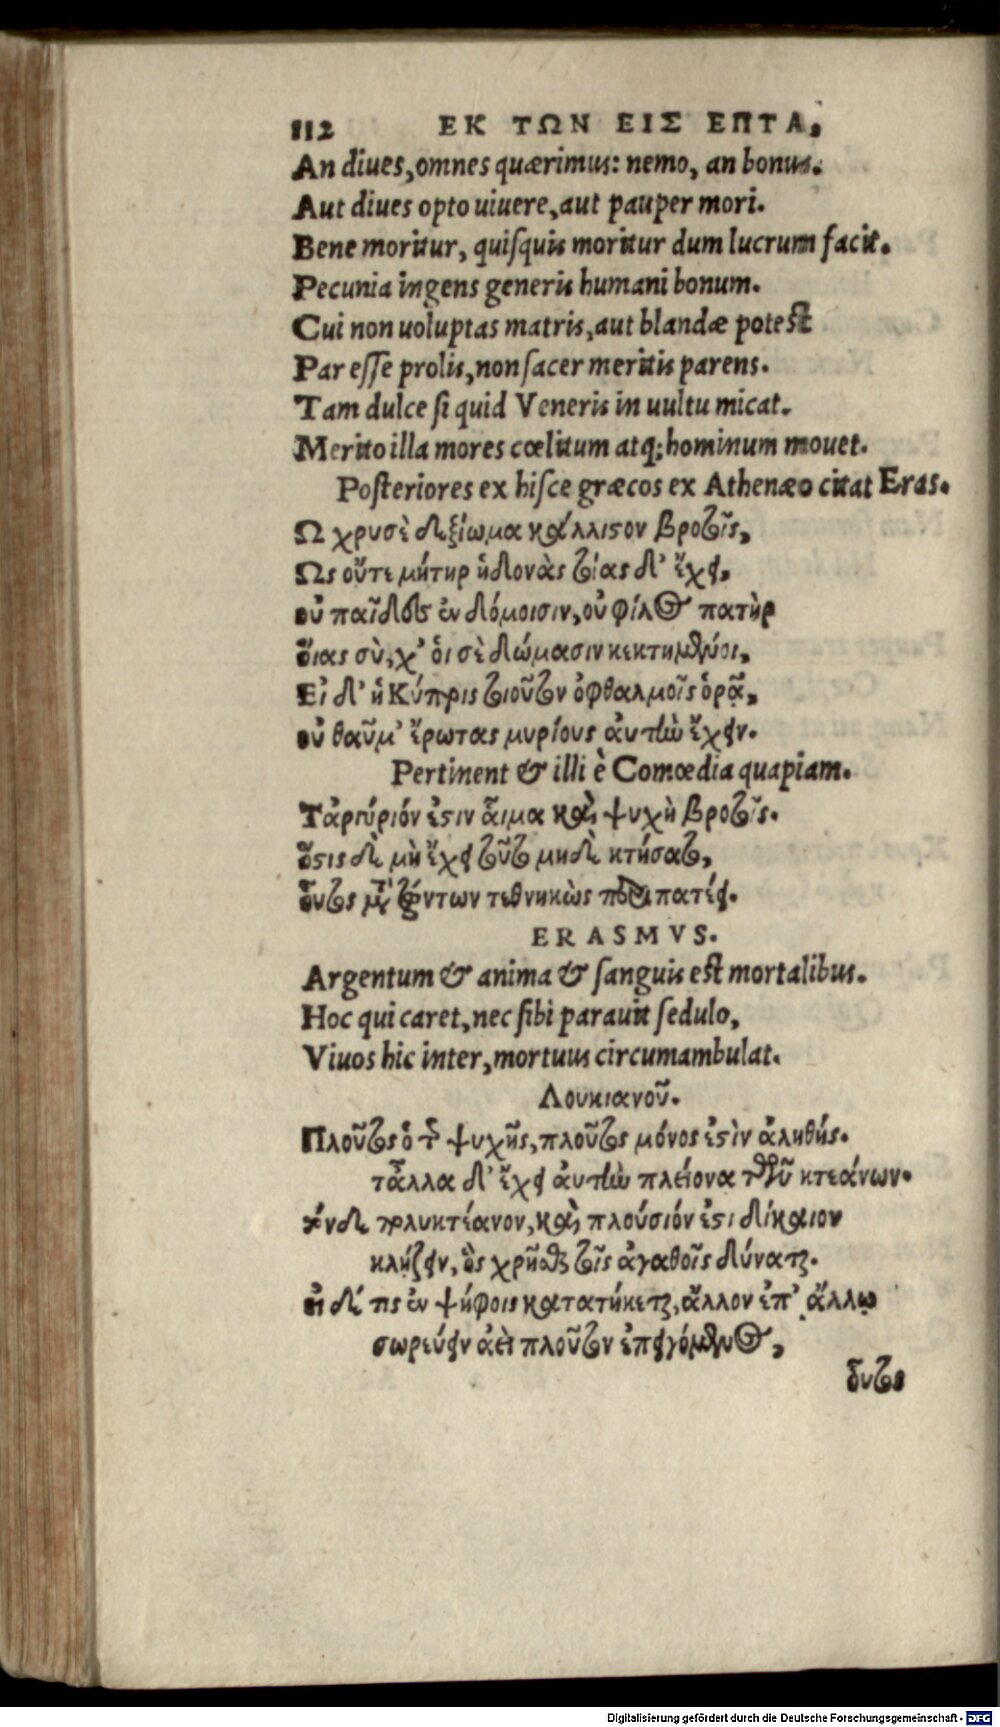 112 ΕΚ ΤΩΝ ΕΙΣ ΕΠΤΑ,
An diues, omnes quærimus: nemo, an bonus.
Aut diues opto uiuere, aut pauper mori.
Bene moritur, quiſquis moritur dum lucrum facit.
Pecunia ingens generis humani bonum.
Cui non uoluptas matris, aut blandæ poteſt
Par eſſe prolis, non ſacer meritis parens.
Tam dulce ſi quid Veneris in uultu micat.
Merito illa mores cœlitum atq; hominum mouet.
Poſteriores ex hiſce græcos ex Athenæo citat Eras.
Ω χρυσὲ δεξίωμα κάλλιστον βροτοῖς,
Ως οὔτε μήτηρ ἡδονὰς τοίας δ' ἔχει,
οὐ παῖδες ἐν δόμοισιν, οὐ φίλος πατὴρ
οἵας σὺ, χ' οἱ σὲ δώμασιν κεκτημένοι,
Εἰ δ' ἡ Κύπρις τοιοῦτον ὀφθαλμοῖς ὁρᾷ,
οὐ θαῦμ' ἔρωτας μυρίους αὐτὴν ἔχειν.
Pertinent & illi è Comœdia quapiam.
Τἀργύριόν ἐστιν αἷμα καὶ ψυχὴ βροτοῖς.
ὅστις δὲ μὴ ἔχει τοῦτο μηδὲ κτήσατο,
οὗτος μετὰ ζώντων τεθνηκὼς περιπατεῖ.
ERASMVS.
Argentum & anima & ſanguis eſt mortalibus.
Hoc qui caret, nec ſibi parauit ſedulo,
Viuos hic inter, mortuus circumambulat.
Λουκιανοῦ.
Πλοῦτος ὁ τῆς ψυχῆς, πλοῦτος μόνος ἐστὶν ἀληθής.
τἆλλα δ' ἔχει αὐτὴν πλείονα τῶν κτεάνων.
τόνδε πολυκτέανον, καὶ πλούσιόν ἐστι δίκαιον
κλῄζειν, ὃς χρῆσθαι τοῖς ἀγαθοῖς δύναται.
εἰ δέ τις ἐν ψήφοις κατατήκεται, ἄλλον ἐπ' ἄλλῳ
σωρεύειν ἀεὶ πλοῦτον ἐπειγόμενος,
οὗτος
Digitalisierung gefördert durch die Deutsche Forschungsgemeinschaft - DFG